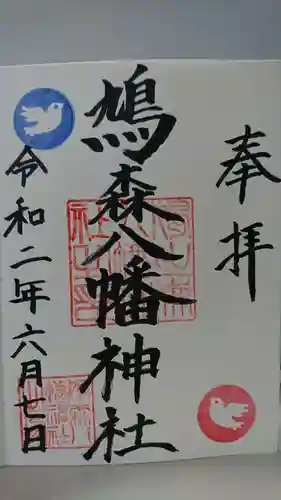 奉拝
鳩森八幡神社
令和二年六月七日